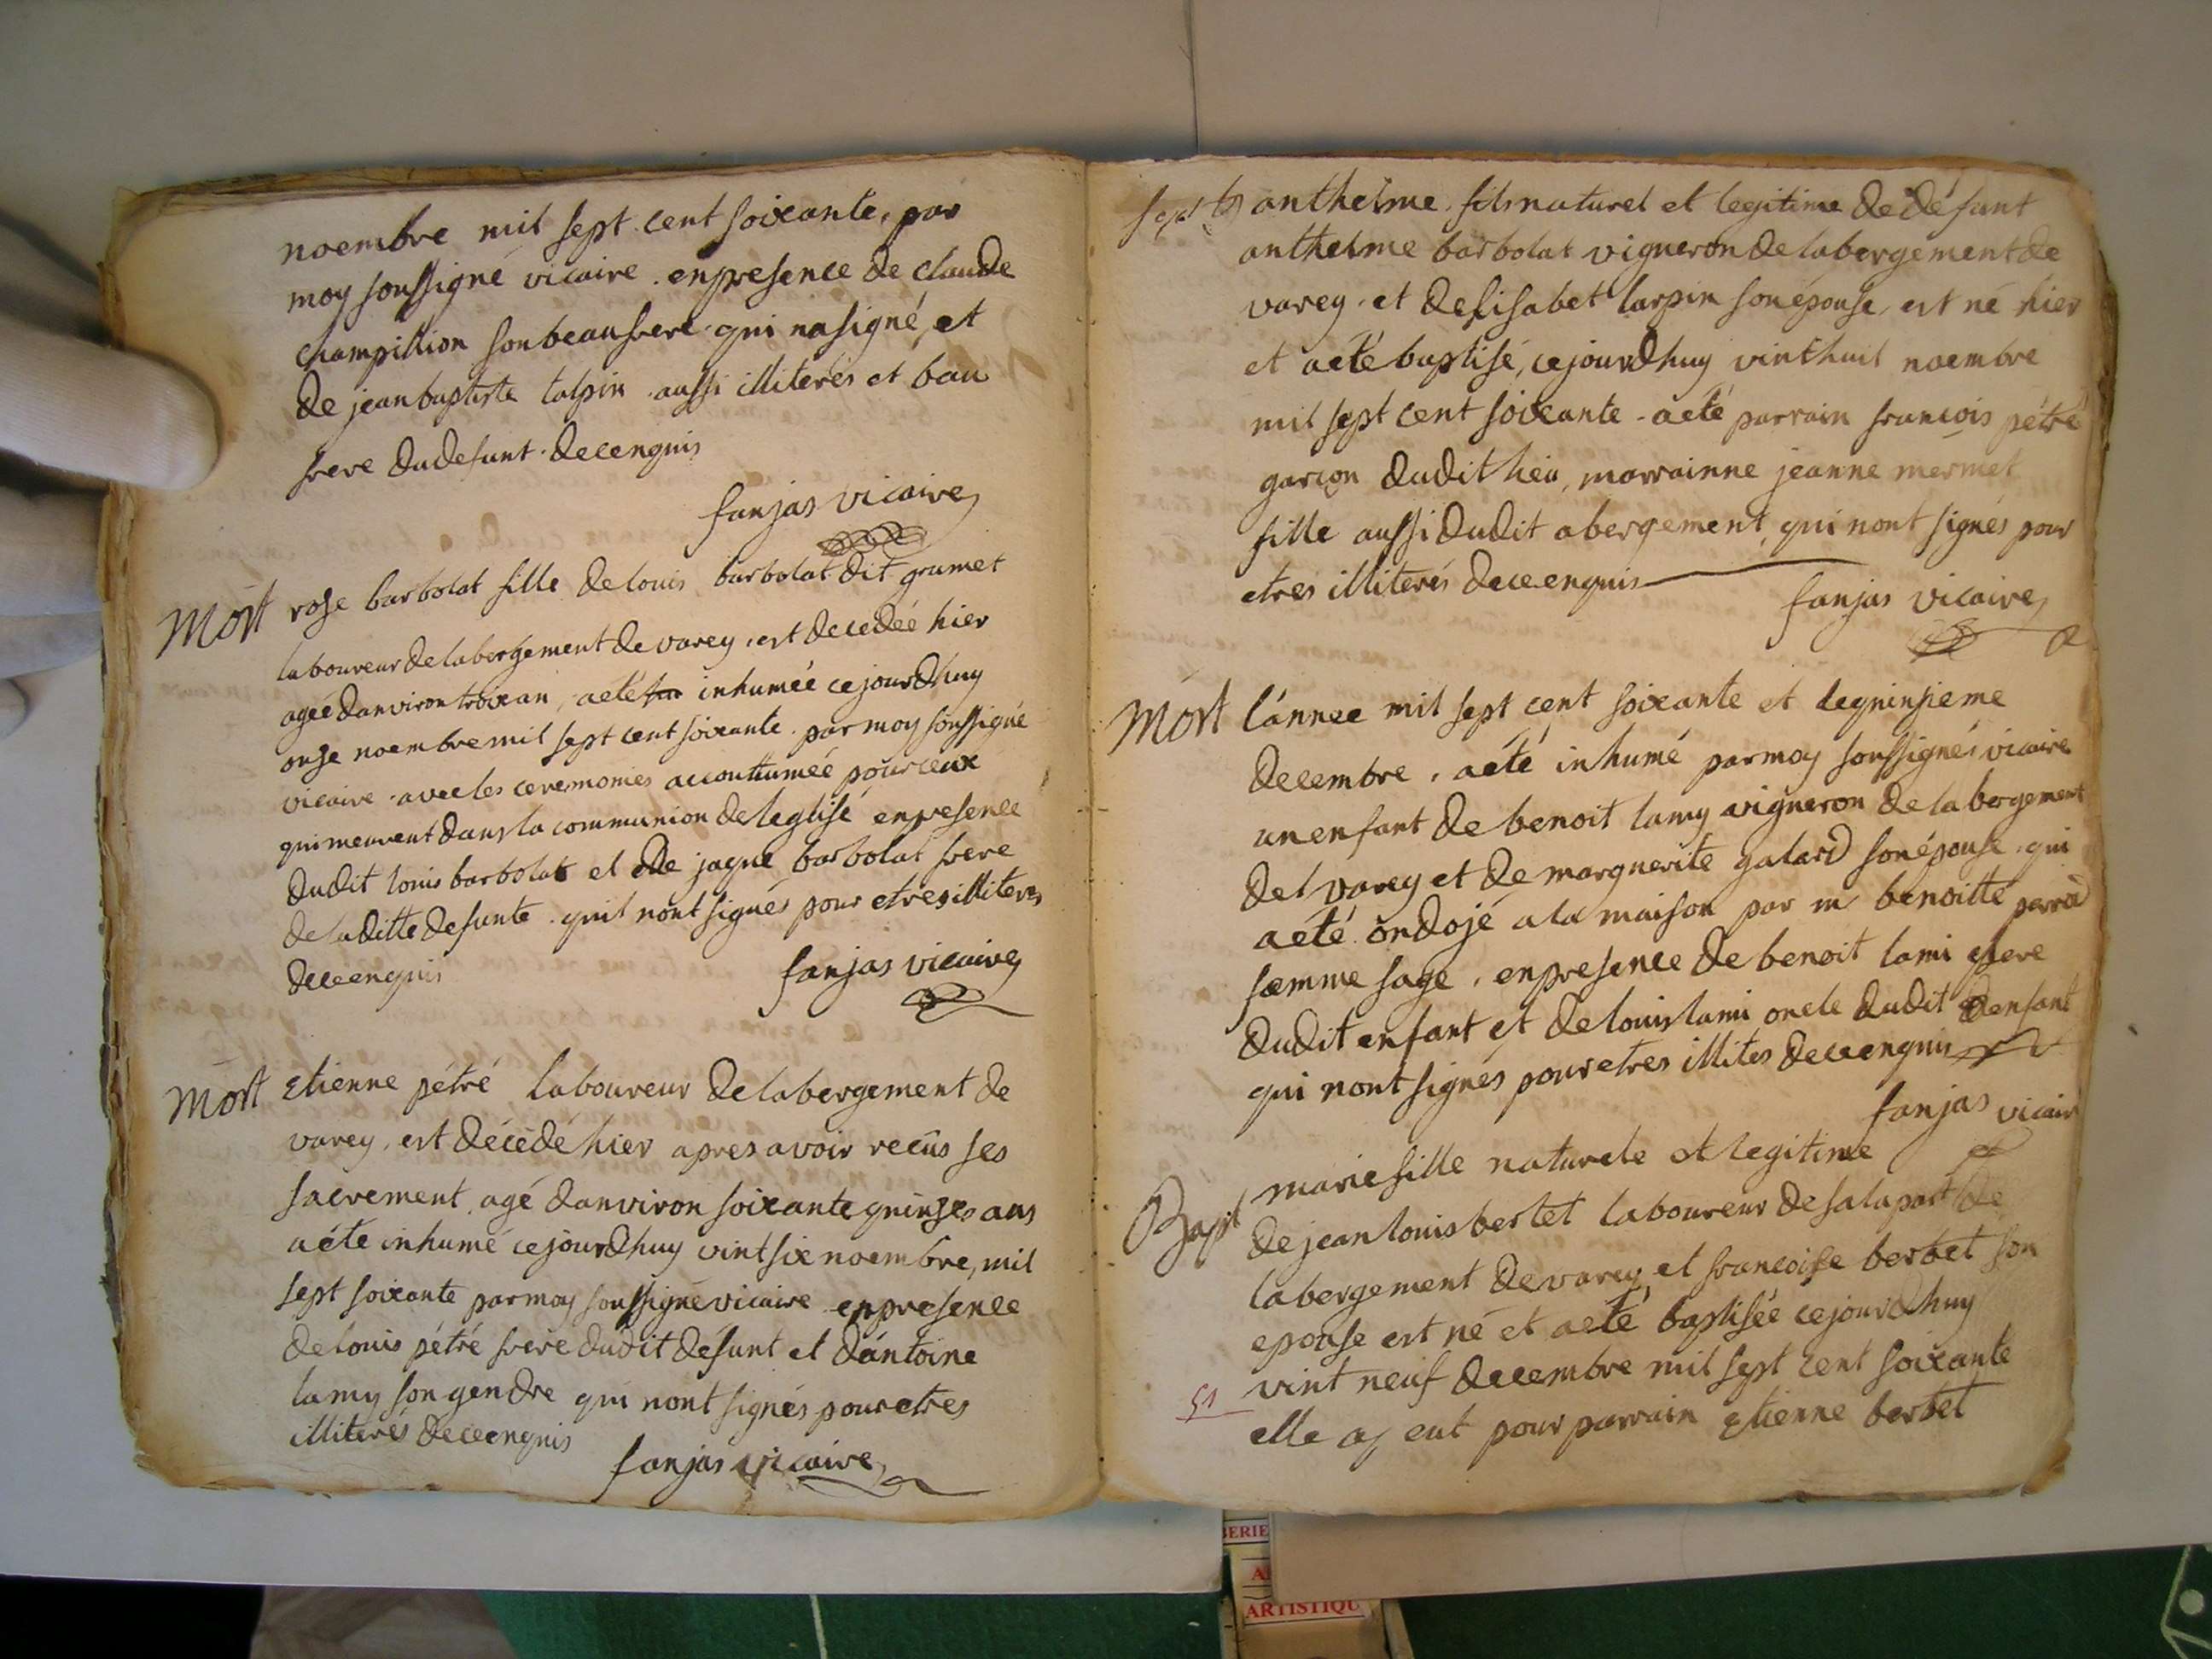 noembre mil sept cent soixante, par
moy soussigné vicaire. enpresence de claude
champillion sonbeaufrere qui nasigné, et
de jeanbaptiste talpin aussi illiterés et bau
frere dudefunt. decenquis
fanjas vicaire
Mort rose barbolat fille delouis barbolat dit grumet
laboureur delabergement de varey, est decedée hier
ageé danviron troixan, aété inhumée cejourdhuy
onse noembre mil sept cent soixante. par moy soussigné
vicaire avecles ceremonies accouttumée pourceux
qui meurent dans la communion deleglise enpresence
dudit louis barbolat et de jaque barbolat frere
deladitte defunte. quil nont signés pour etresilliterés
decenquis
fanjas vicaire
Mort Etienne pétré laboureur delabergement de
varey, est décédé hier apres avoir recûs ses
sacrement, agé danviron soixantequinzes ans
aété inhumé cejourdhuy vintsix noembre, mil
sept soixante parmoy soussigné vicaire enpresence
delouis pétré frere dudit défunt et dántoine
lamy son gendre qui nont signés pouretres
illiterés decenquis
fanjas vicaire
anthelme. fils naturel et legitime de défunt
anthelme barbolat vigneron delabergement de
varey. et delisabet larpin sonépouse, est né hier
et aété baptisé, cejourdhuy vinthuit noembre
mil sept cent soixante. aété parrain francois pétré
garcon dudit lieu, marrainne jeanne mermet
fille aussi dudit abergement, qui nont signés pour
etres illiterés decenquis
fanjas vicaire
Mort lánnee mil sept cent soixante et lequinsieme
decembre, aété inhumé parmoy soussignés vicaire
unenfant de benoit lamy vigneron delabergement
del varey et de marguerite galard sonépouse. qui
aété ondojé a la maison par m benoitte
fæmme sage, enpresence de benoit lami pere
dudit enfant et delouis lami oncle dudit enfant
qui nont signés pouretres illités decenquis
fanjas vicair
Bapt marie fille naturele et legitime
de jean louis bertet laboureur desalaport de
labergement devarey et francoise berbet son
epouse est né et aété baptisée cejourdhuy
vint neuf decembre mil sept cent soixante
51
elle ay eut pour parrain Etienne berbet
BERIE
ARTISTIQU